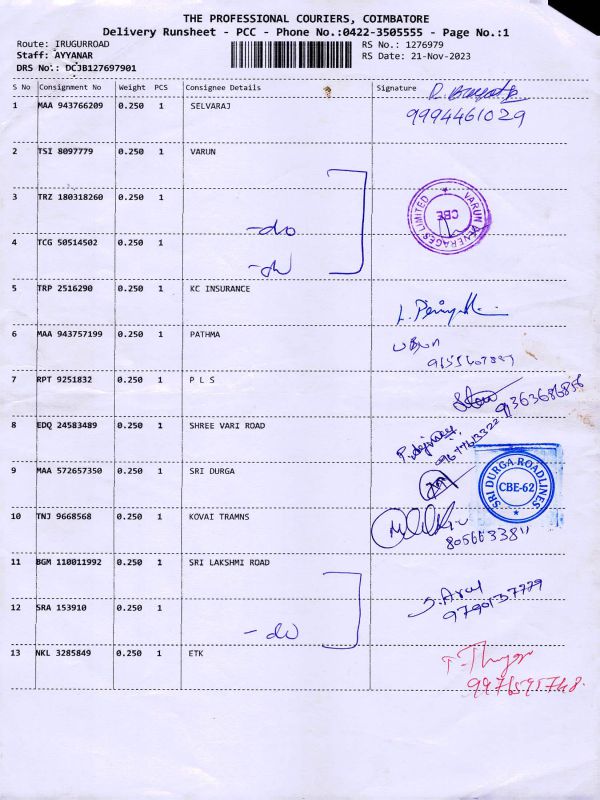 THE PROFESSIONAL COURIERS, COIMBATORE
Delivery Runsheet - PCC - Phone No.:0422-3505555 - Page No.:1
Route: IRUGURROAD
Staff: AYYANAR
DRS No.: DCJB127697901
RS No.: 1276979
RS Date: 21-Nov-2023
S No Consignment No Weight PCS Consignee Details Signature
1 MAA 943766209 0.250 1 SELVARAJ
9994461029
2 TSI 8097779 0.250 1 VARUN
3 TRZ 180318260 0.250 1 -do
VARUN BEVERAGES LIMITED
CBE
4 TCG 50514502 0.250 1 -do
5 TRP 2516290 0.250 1 KC INSURANCE
6 MAA 943757199 0.250 1 PATHMA
7 RPT 9251832 0.250 1 P L S
9363686856
8 EDQ 24583489 0.250 1 SHREE VARI ROAD
9 MAA 572657350 0.250 1 SRI DURGA
SRI DURGA ROADLINES
CBE-62
10 TNJ 9668568 0.250 1 KOVAI TRAMNS
11 BGM 110011992 0.250 1 SRI LAKSHMI ROAD
9790137779
12 SRA 153910 0.250 1 -do
13 NKL 3285849 0.250 1 ETK